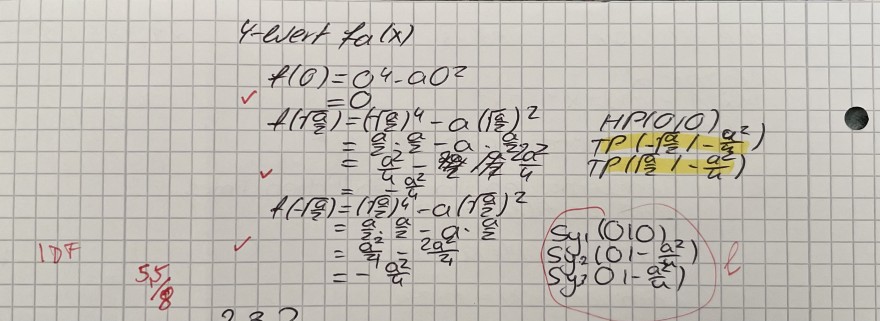 y-Wert fa(x)
f(0) = 0⁴ - a0²
✓ = 0
f(√(a/2)) = (√(a/2))⁴ - a(√(a/2))²
= a/2 · a/2 - a · a/2
= a²/4 - 2a²/4
✓ = - a²/4
f(-√(a/2)) = (√(a/2))⁴ - a(√(a/2))²
= a/2 · a/2 - a · a/2
✓ = a²/4 - 2a²/4
= - a²/4
HP(0|0)
TP(-√(a/2) | - a²/4)
TP(√(a/2) | - a²/4)
Sy₁(0|0)
Sy₂(0|- a²/4)
Sy₃ 0|- a²/4)
f
1DF
5,5/8